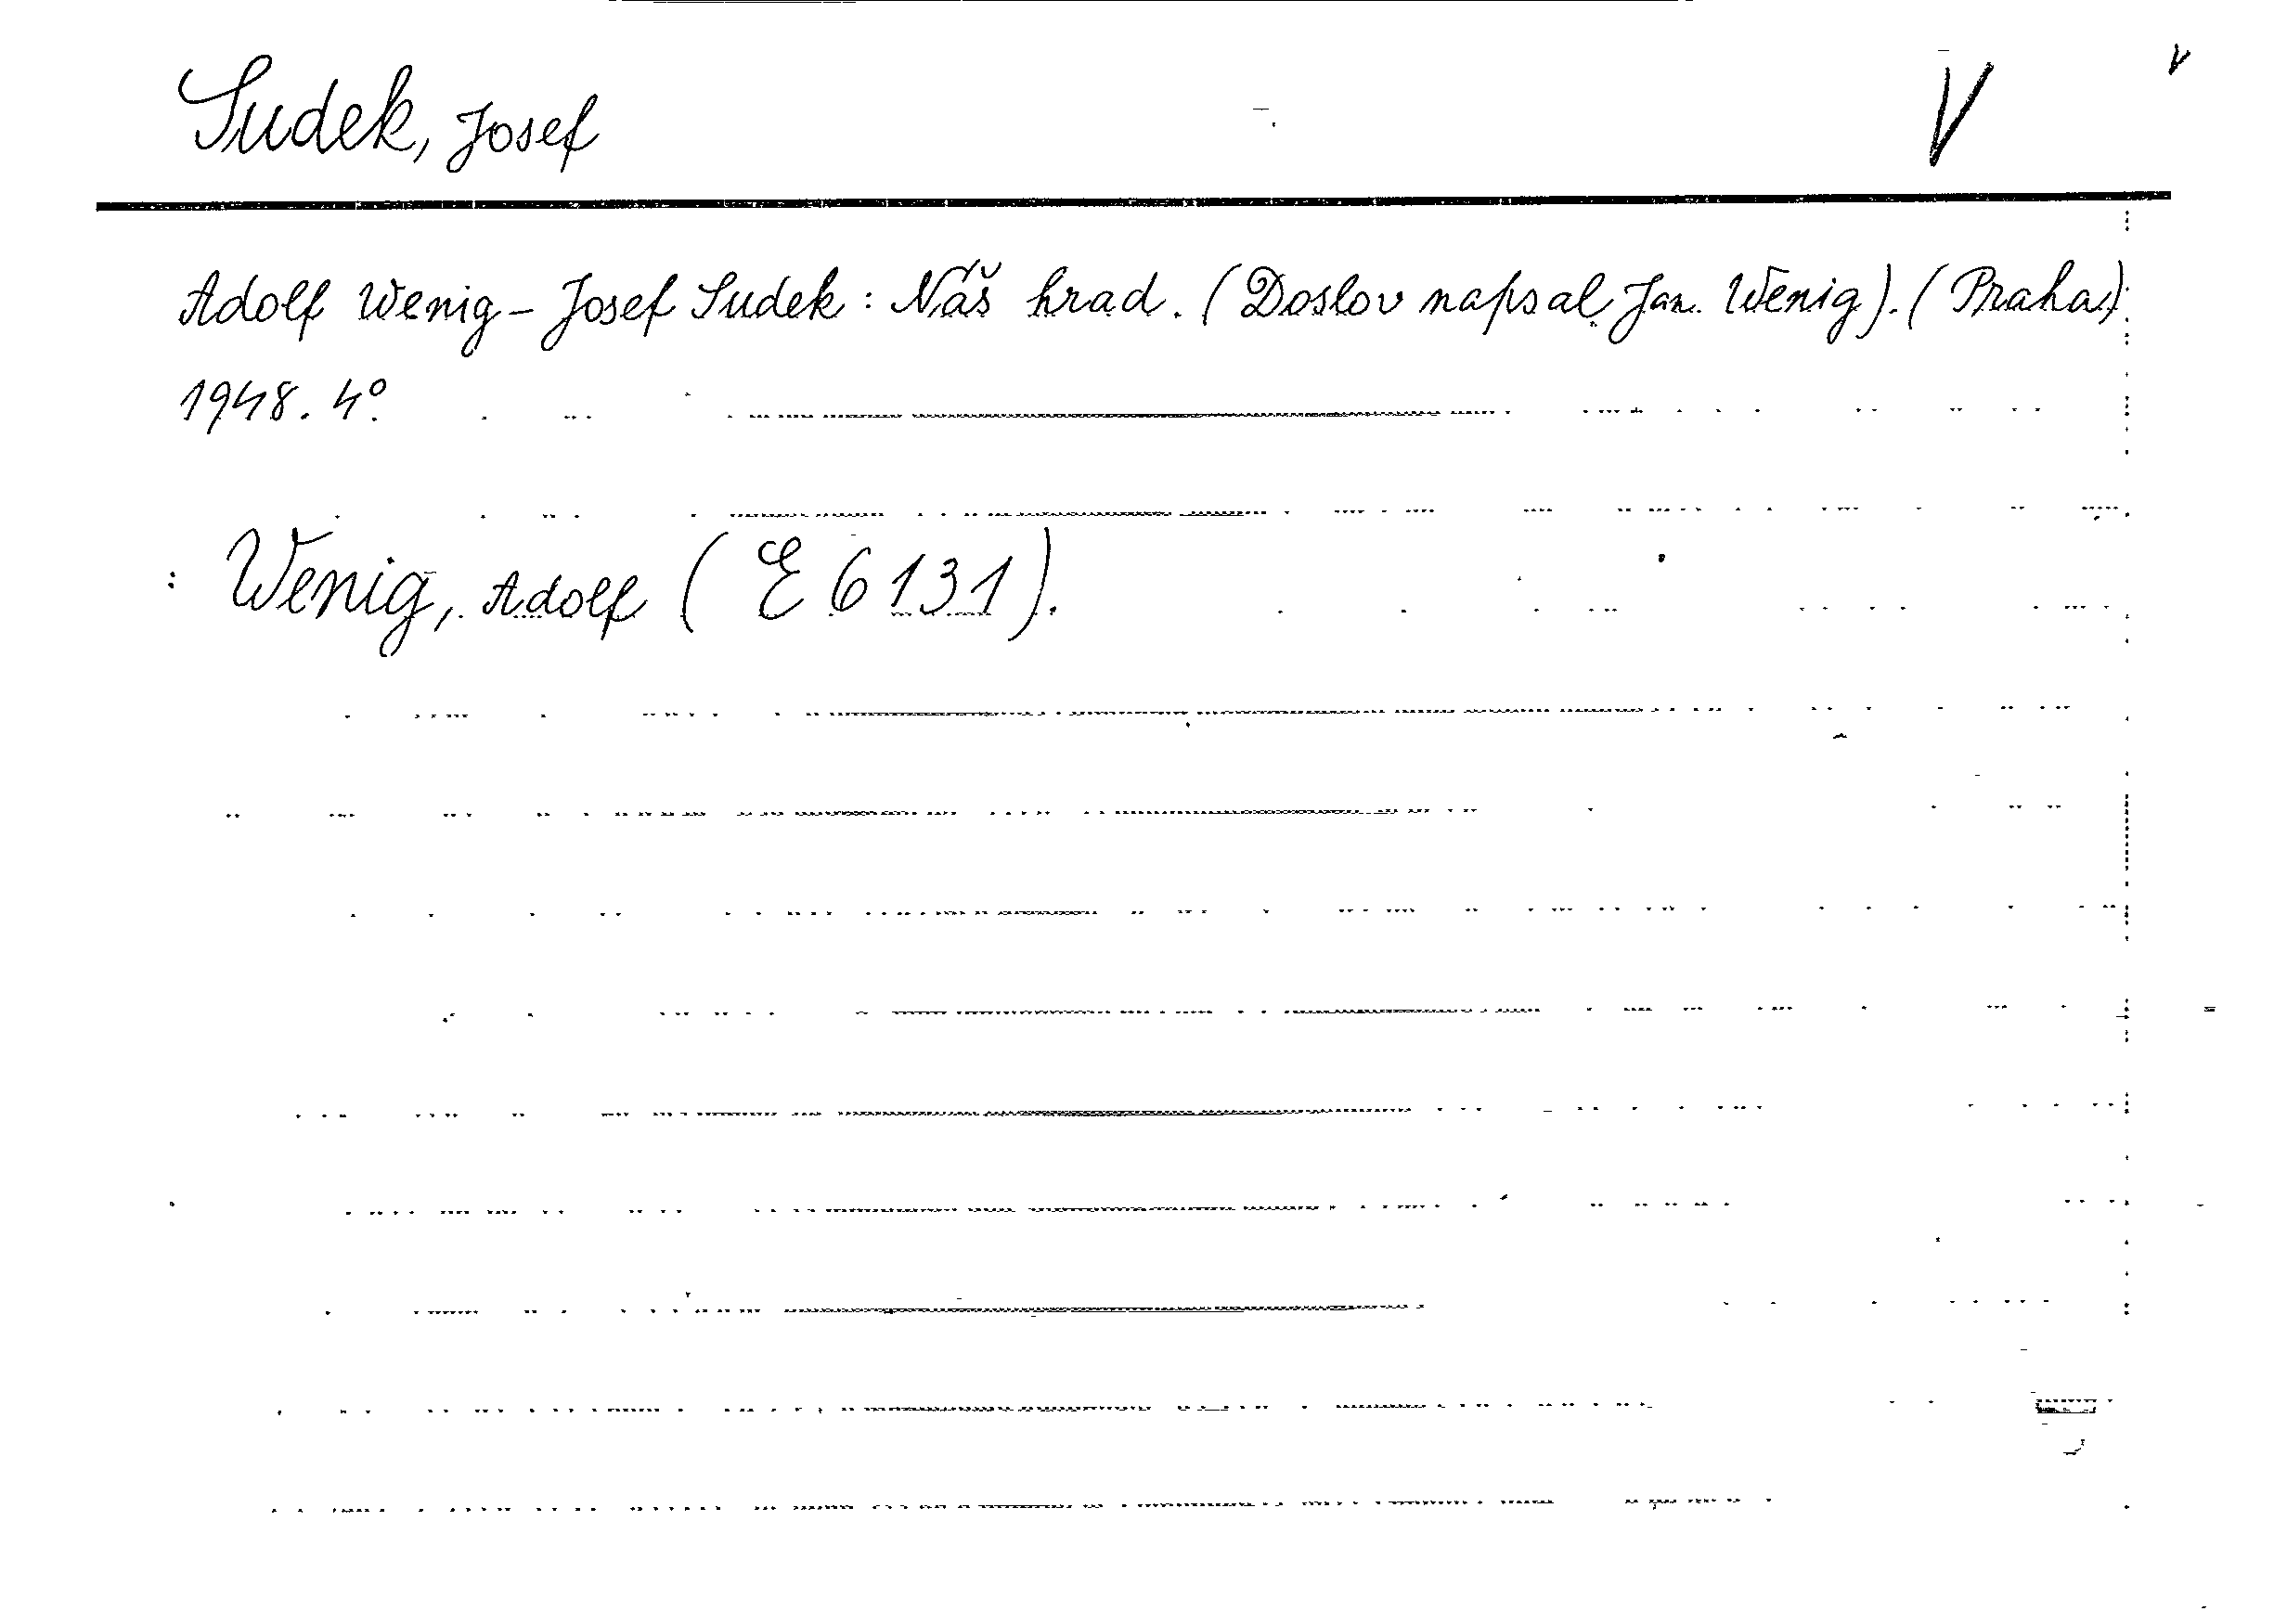 Sudek, Josef
V
v
Adolf Wenig - Josef Sudek: Náš hrad. (Doslov napsal Jan Wenig). (Praha)
1948. 4°.
: Wenig, Adolf (E 6131).